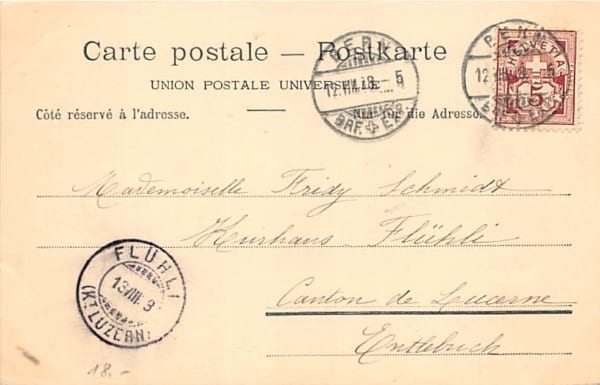 Carte postale — Postkarte
UNION POSTALE UNIVERSELLE
Côté réservé à l'adresse. — für die Adresse.
BERN
12.VIII. 8-5
BRF. EXP.
BERN
12.VIII. 5
HELVETIA
5
Mademoiselle Fridy Schmidt
Kurhaus Flühli
Canton de Lucerne
Entlebuch
FLÜHLI
13.VIII.9
(KT. LUZERN)
18.-